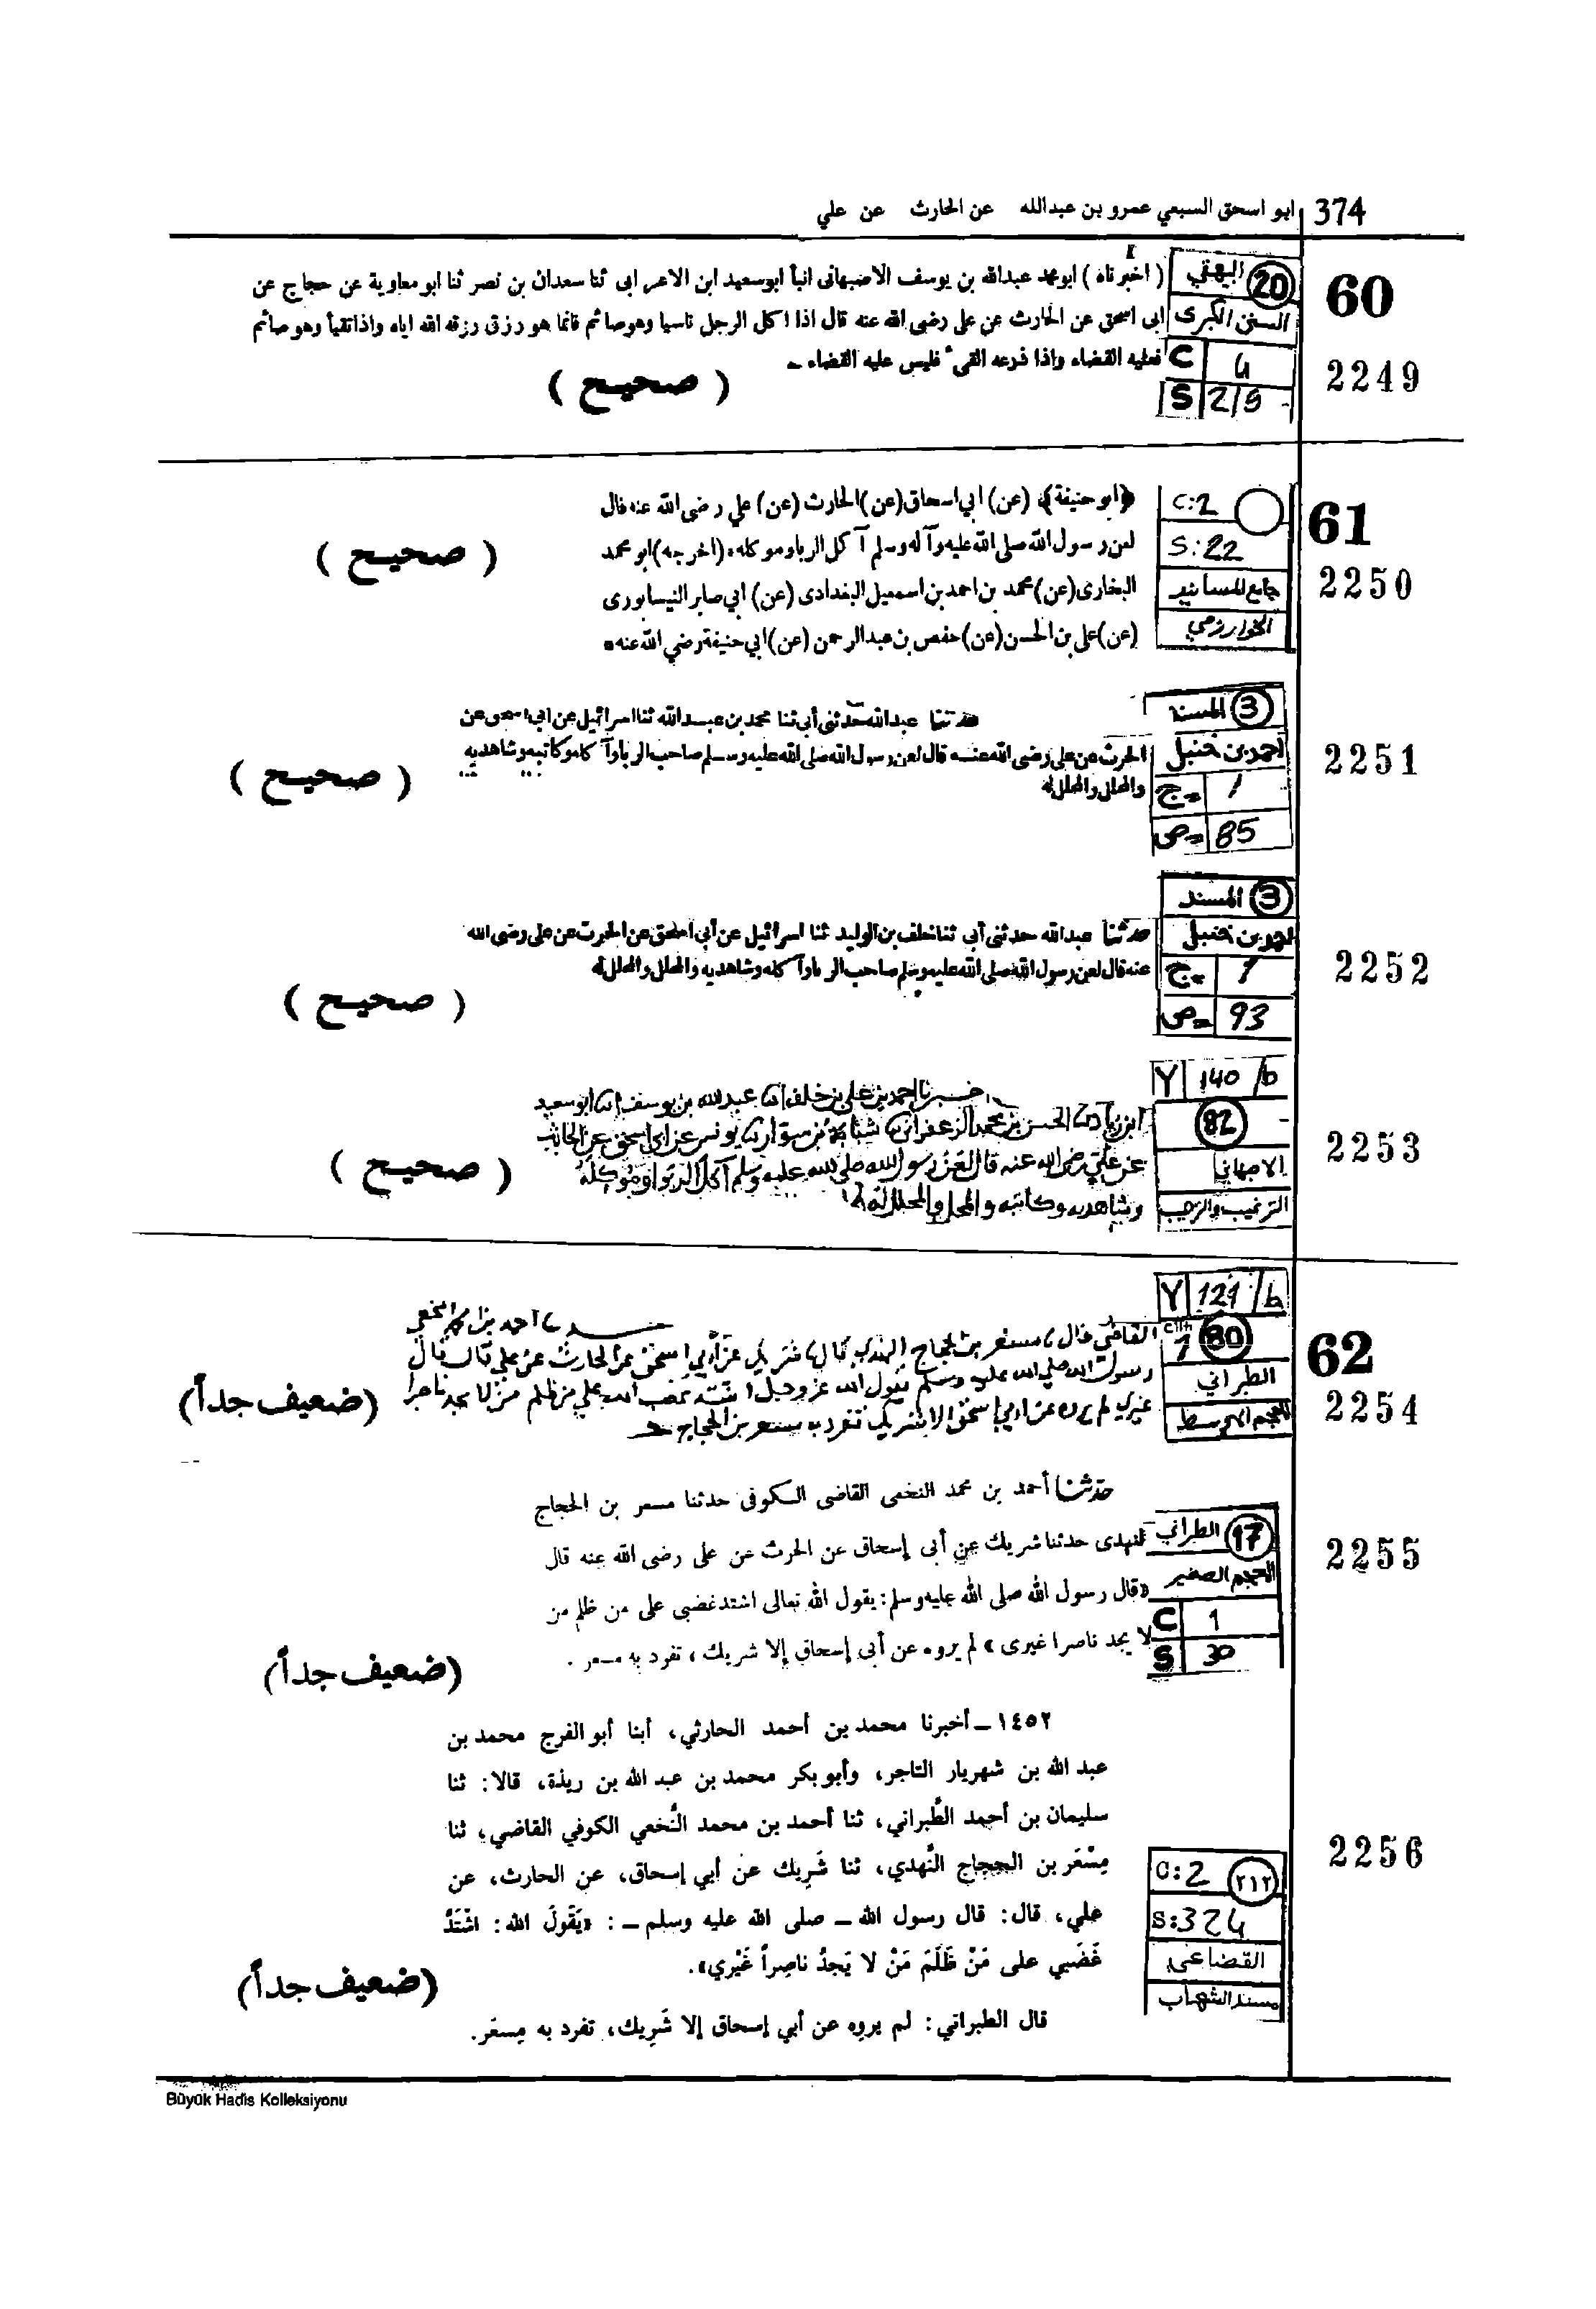 374 ابو اسحق السبعي عمرو بن عبدالله عن الحارث عن علي
60
2249
20 البيهقي
السنن الكبرى
C 4
S 2/9
( اخبرناه ) ابومحمد عبدالله بن يوسف الاصبهانى انبأ ابوسعيد ابن الاعرابى ثنا سعدان بن نصر ثنا ابو معاوية عن حجاج عن
ابى اسحق عن الحارث عن على رضى الله عنه قال اذا اكل الرجل ناسيا وهو صائم فانما هو رزق رزقه الله اياه واذا تقيأ وهو صائم
فعليه القضاء واذا ذرعه القىء فليس عليه القضاء ــ
( صحيح )
61
2250
C:2
S:22
جامع المسانيد
الخوارزمي
(ابو حنيفة) (عن) ابي اسحاق (عن) الحارث (عن) علي رضى الله عنه قال
لعن رسول الله صلى الله عليه وآله وسلم آكل الربا وموكله (اخرجه) ابو محمد
البخارى (عن) محمد بن احمد بن اسمعيل البغدادى (عن) ابي صابر النيسابورى
(عن) علي بن الحسن (عن) حفص بن عبد الرحمن (عن) ابي حنيفة رضي الله عنه
( صحيح )
2251
3 المسند
احمد بن حنبل
ج= 1
ص= 85
حدثنا عبدالله حدثنى أبى ثنا محمد بن عبدالله ثنا اسرائيل عن ابى اسحق عن
الحرث عن على رضى الله عنه قال لعن رسول الله صلى الله عليه وسلم صاحب الربا وآكله وكاتبه وشاهديه
والمحلل والمحلل له
( صحيح )
2252
3 المسند
احمد بن حنبل
ج= 1
ص= 93
حدثنا عبدالله حدثنى أبى ثنا خلف بن الوليد ثنا اسرائيل عن أبى اسحق عن الحرث عن على رضى الله
عنه قال لعن رسول الله صلى الله عليه وسلم صاحب الربا وآكله وشاهديه والمحلل والمحلل له
( صحيح )
2253
Y 140/b
82
الاصبهاني
الترغيب والترهيب
اخبرنا احمد بن علي بن خلف انا عبد الله بن يوسف انا ابو سعيد
الحسن بن محمد الزعفراني شبابة بن سوار يونس عن ابي اسحق عن الحارث
عن علي رضي الله عنه قال لعن رسول الله صلى الله عليه وسلم آكل الربوا وموكله
وشاهديه وكاتبه والمحل والمحلل له
( صحيح )
62
2254
Y 121/b
80
الطبراني
المعجم الاوسط
احمد بن محمد النخعي
القاضي قال مسعر بن الحجاج النهدي قال شريك عن أبي اسحق عن الحارث عن علي قال قال
رسول الله صلى الله عليه وسلم يقول الله عز وجل اشتد غضب الله علي من ظلم من لا يجد ناصرا
غيري لم يروه عن ابي اسحق الا شريك تفرد به مسعر بن الحجاج
(ضعيف جداً)
2255
17 الطبراني
المعجم الصغير
C 1
S 30
حدثنا أحمد بن محمد النخعى القاضى الكوفى حدثنا مسعر بن الحجاج
النهدى حدثنا شريك عن أبى إسحاق عن الحرث عن على رضى الله عنه قال
«قال رسول الله صلى الله عليه وسلم: يقول الله تعالى اشتد غضبى على من ظلم من
لا يجد ناصرا غيرى» لم يروه عن أبى إسحاق إلا شريك ، تفرد به مسعر .
(ضعيف جداً)
2256
C:2 ٢١٢
S:324
القضاعي
مسند الشهاب
١٤٥٢ ــ أخبرنا محمد بن أحمد الحارثي، أبنا أبو الفرج محمد بن
عبد الله بن شهريار التاجر، وأبو بكر محمد بن عبد الله بن ريذة، قالا: ثنا
سليمان بن أحمد الطَّبراني، ثنا أحمد بن محمد النَّخعي الكوفي القاضي، ثنا
مِسْعَر بن الحجاج النَّهدي، ثنا شَرِيك عن أبي إسحاق، عن الحارث، عن
علي، قال: قال رسول الله ــ صلى الله عليه وسلم ــ : «يَقُولُ الله: اشْتَدَّ
غَضَبي على مَنْ ظَلَمَ مَنْ لا يَجدُ ناصِراً غَيْري».
قال الطبراني: لم يروه عن أبي إسحاق إلا شَرِيك، تفرد به مِسعَر.
(ضعيف جداً)
Büyük Hadis Kolleksiyonu